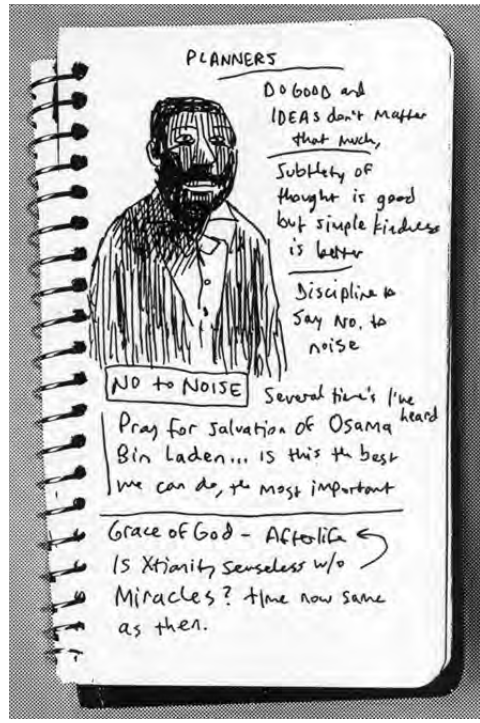 PLANNERS
DO GOOD and
IDEAS don't matter
that much,
Subtlety of
thought is good
but simple kindness
is better
Discipline to
Say No. to
noise
NO to NOISE
Several time's I've
heard
Pray for salvation of Osama
Bin Laden... is this the best
we can do, the most important
Grace of God - Afterlife
Is Xtianity senseless w/o
Miracles? time now same
as then.